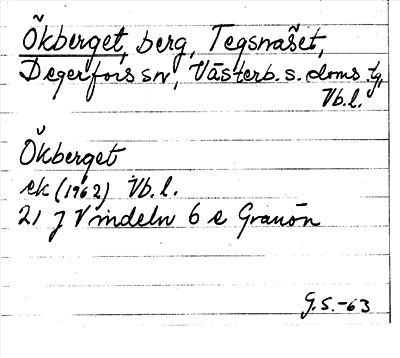 Ökberget, berg, Tegsnäset,
Degerfors sn, Västerb. s. doms. tg,
Vb.l.
Ökberget
ek (1962) Vb.l.
21 J Vindeln 6 e Granön
G.S.-63